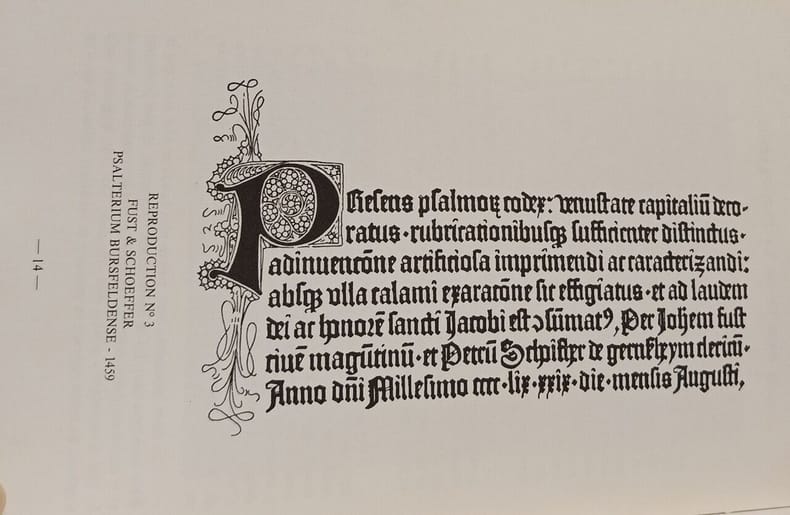 PResens psalmoꝝ codex: venustate capitaliū deco-
ratus·rubricationibusqꝫ sufficienter distinctus·
adinuencōne artificiosa imprimendi ac caracterizandi:
absqꝫ vlla calami exaracōne sic effigiatus·et ad laudem
dei ac honorē sancti Jacobi est ↄsūmatꝰ, Per Johēm fust
ciuē magūtinū·et Petrū Schoifher de gernsheym clericū·
Anno dn̄i Millesimo cccc·lix·xxix·die·mensis Augusti,
REPRODUCTION N° 3
FUST & SCHOEFFER
PSALTERIUM BURSFELDENSE - 1459
— 14 —